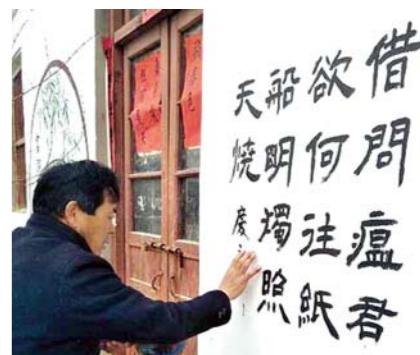 借問瘟君
欲何往紙
船明濁照
天燒
慶